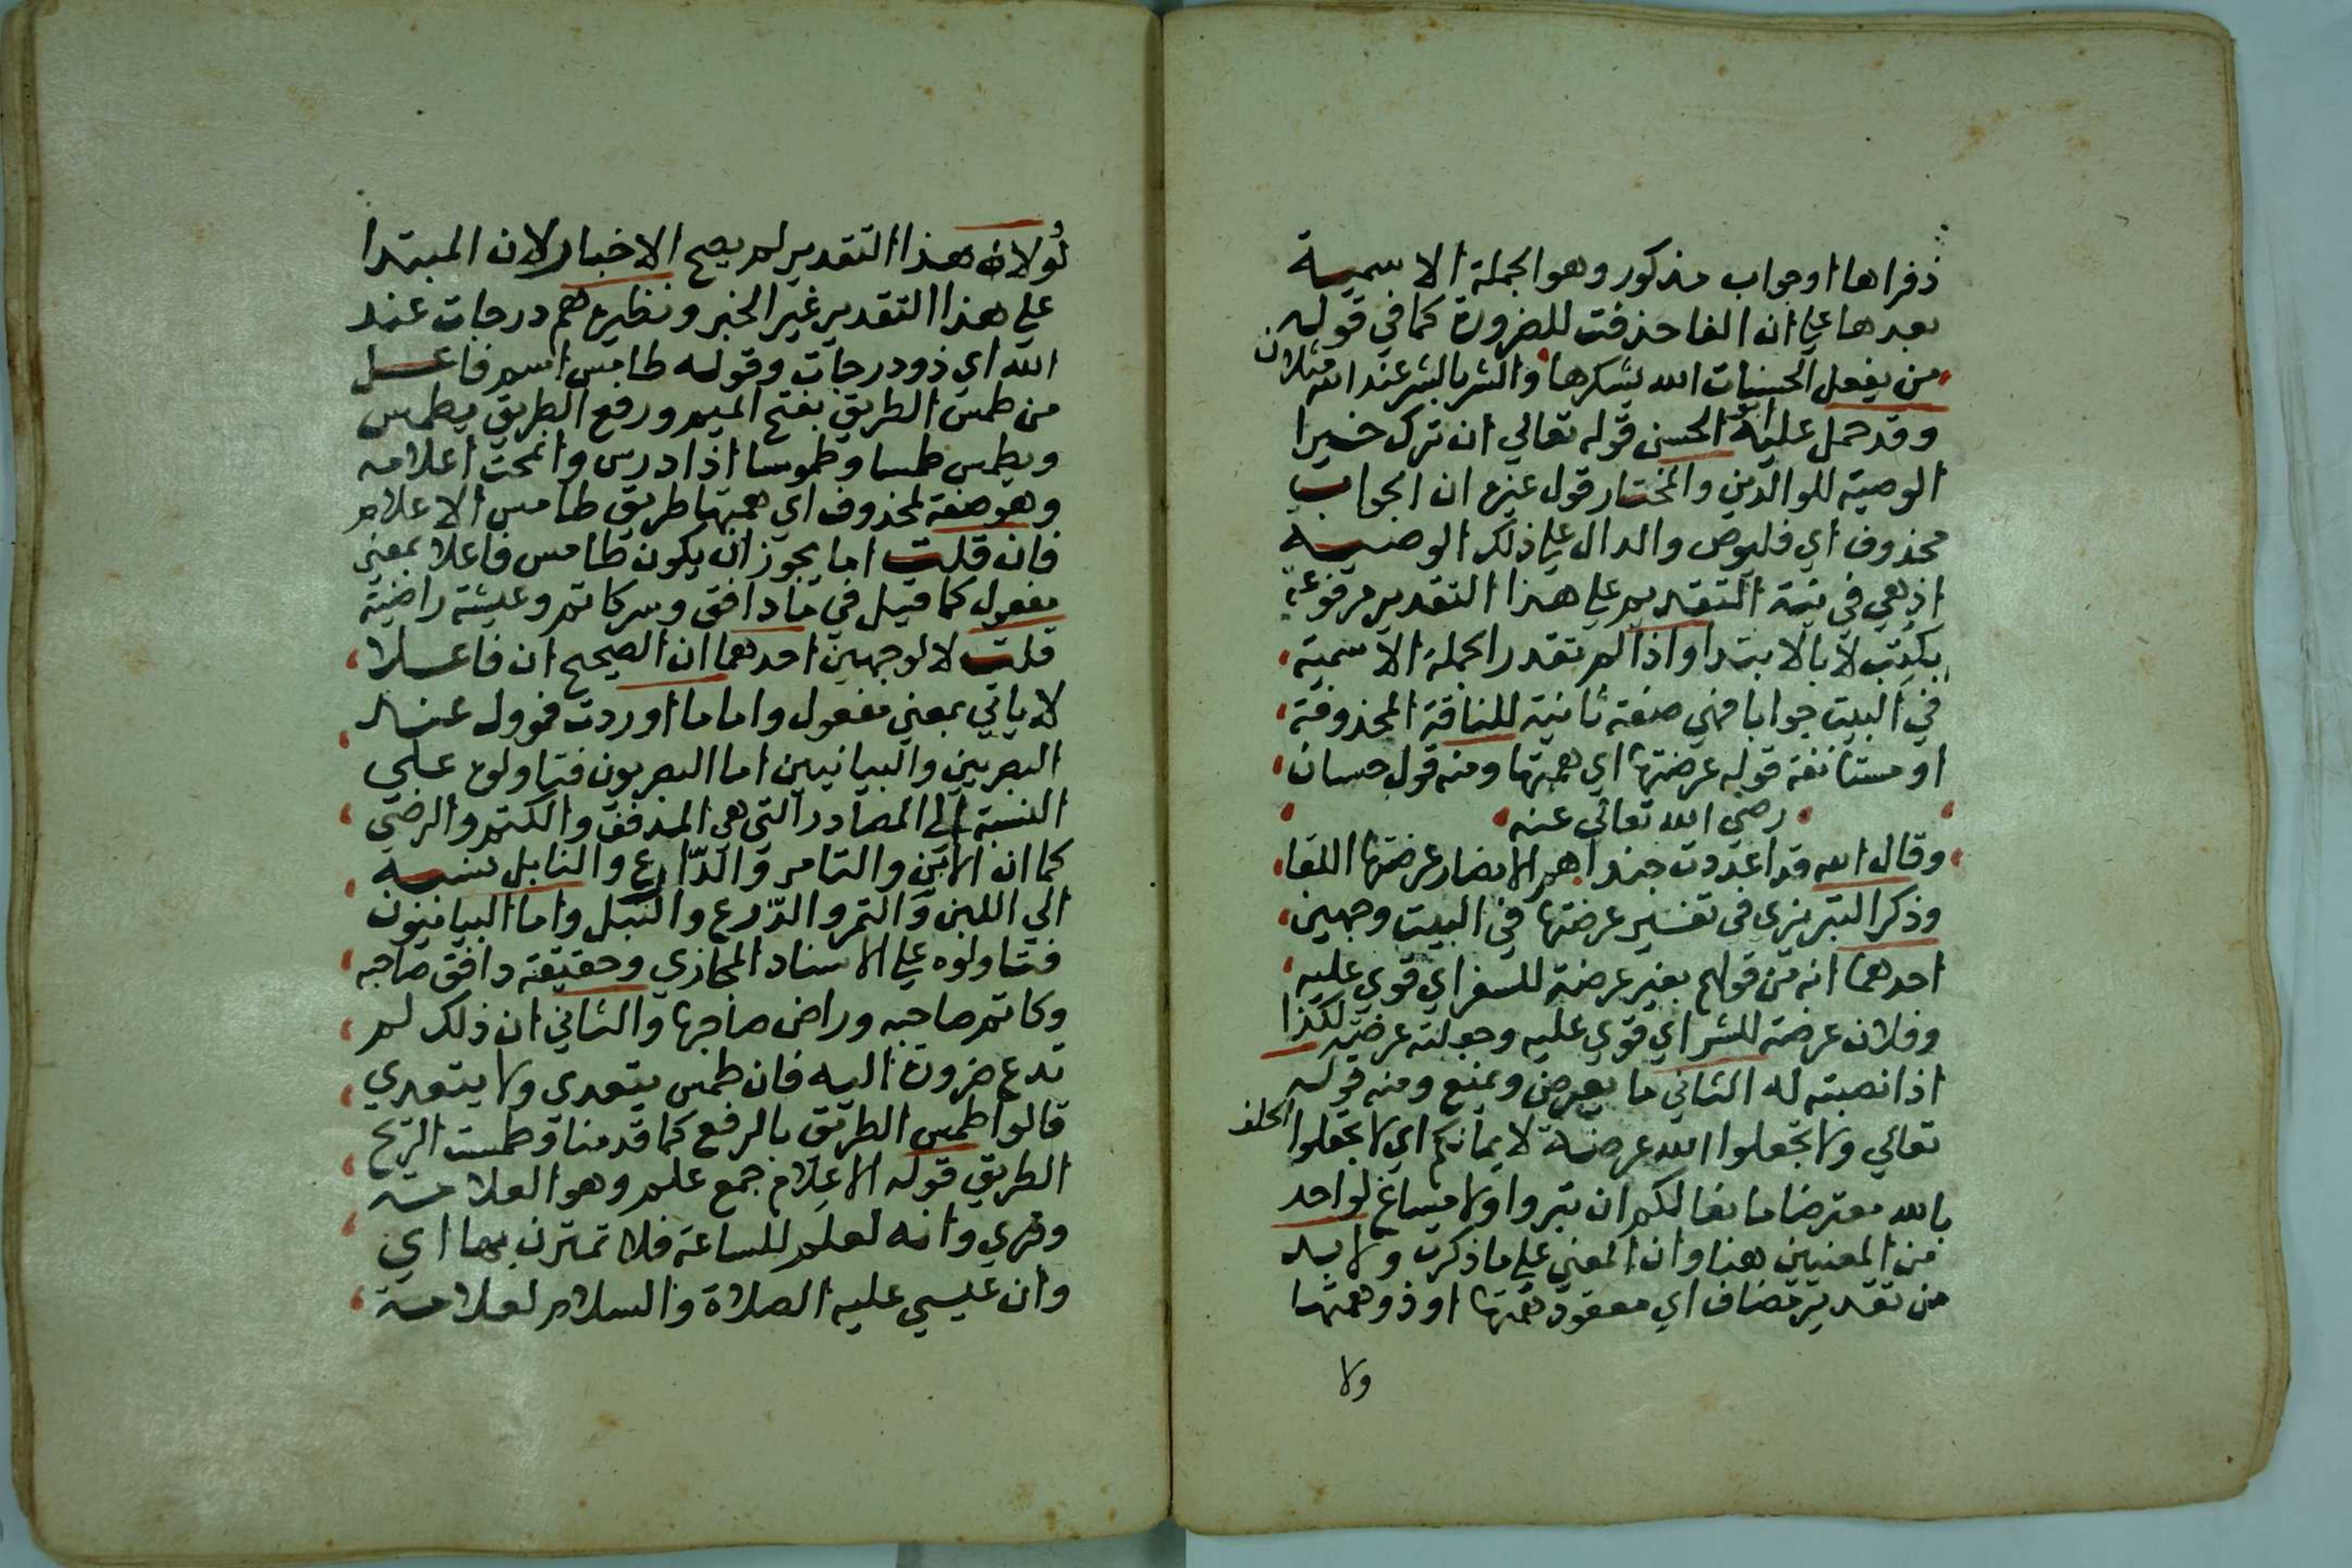 ذفراها او جواب مذكور وهو الجملة الاسمية
بعدها علي ان الفا حذفت للضرورة كما في قوله
من يفعل الحسنات الله يشكرها والشر بالشر عند الله مثلان
وقد حمل عليه الحسن قوله تعالي ان ترك خيرا
الوصية للوالدين والمختار قول غيره ان الجواب
محذوف اي فليوص والدال علي ذلك الوصية
اذ هي في نية التقديم علي هذا التقدير مرفوعة
بكتب لا بالابتدا واذا لم تقدر الجملة الاسمية
في البيت جوابا فهي صفة ثانية للناقة المحذوفة
او مستانفة قوله عرضتها اي همتها ومنه قول حسان
رضي الله تعالي عنه
وقال الله قد اعددت جندا هم الانصار عرضتها اللقا
وذكر التبريزي في تفسير عرضتها في البيت وجهين
احدهما انه من قولهم بعير عرضة للسفر اي قوي عليه
وفلان عرضة للشر اي قوي عليه وجعلته عرضة لكذا
اذا نصبته له الثاني ما يعرض ويمنع ومنه قوله
تعالي ولا تجعلوا الله عرضة لايمانكم اي لا تجعلوا الحلف
بالله معترضا مانعا لكم ان تبروا ولا مساغ لواحد
من المعنيين هنا وان المعني علي ما ذكرت ولا بد
من تقدير مضاف اي معقود همتها او ذو همتها
ولا
لولا هذا التقدير لم يصح الاخبار لان المبتدا
علي هذا التقدير غير الخبر ونظيره هم درجات عند
الله اي ذوو درجات وقوله طامس اسم فاعل
من طمس الطريق بفتح الميم ورفع الطريق يطمس
ويطمس طمسا وطموسا اذا درس وانمحت اعلامه
وهو صفة لمحذوف اي همتها طريق طامس الاعلام
فان قلت اما يجوز ان يكون طامس فاعلا بمعني
مفعول كما قيل في ما دافق وسر كاتم وعيشة راضية
قلت لا لوجهين احدهما ان الصحيح ان فاعلا
لا ياتي بمعني مفعول واما ما اوردت فموول عند
البصريين والبيانيين اما البصريون فتاولوه علي
النسبة الي المصادر التي هي الدفق والكتم والرضي
كما ان اللابن والتامر والدارع والنابل نسبة
الي اللبن والتمر والدرع والنبل واما البيانيون
فتاولوه علي الاسناد المجازي وحقيقة دافق صاحبه
وكاتم صاحبه وراض صاحبها والثاني ان ذلك لم
تدع ضرورة اليه فان طمس يتعدي ولا يتعدي
قالوا طمس الطريق بالرفع كما قدمنا وطمست الريح
الطريق قوله الاعلام جمع علم وهو العلامة
وقري وانه لعلم للساعة فلا تمترن بها اي
وان عيسي عليه الصلاة والسلام لعلامة